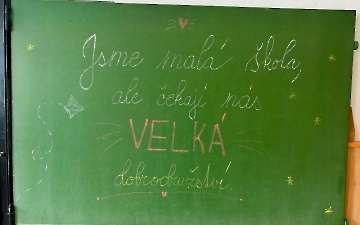 Jsme malá škola,
ale čekají nás
VELKÁ
dobrodružství.